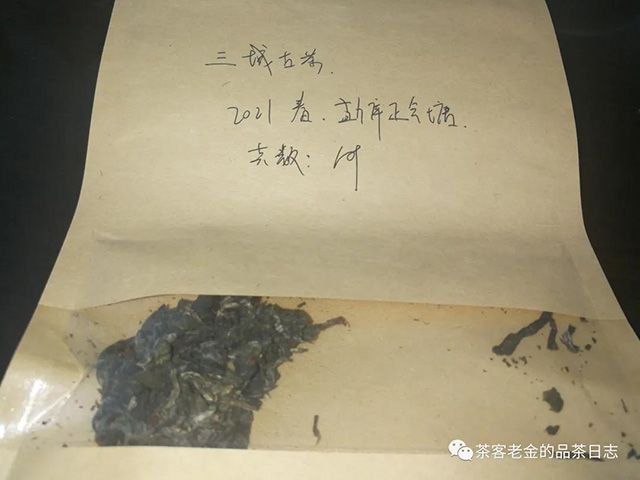 三域古茶.
2021春.勐库正气塘.
克数: 10f
茶客老金的品茶日志